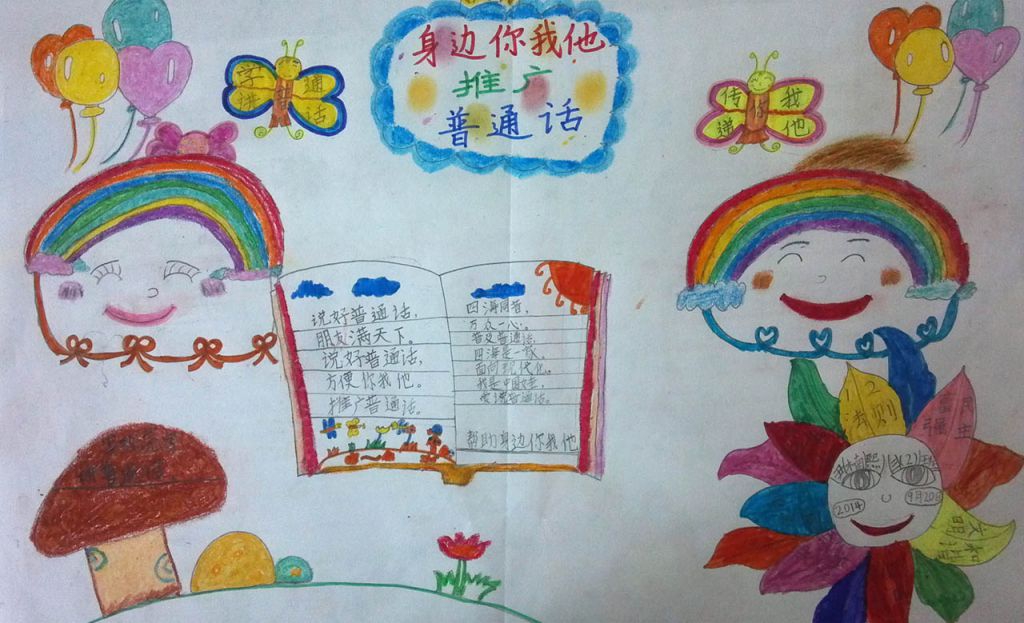 身边你我他
推广
普通话
学通
推话
传你我
递他
说好普通话，
朋友满天下。
说好普通话，
方便你我他。
推广普通话。
四海同音，
万众一心。
普及普通话，
四海是一家。
面向现代化。
我是中国娃，
爱说普通话。
帮助身边你我他
12
法则
富民
强主
文和
明谐
(2)
2014
9月20日